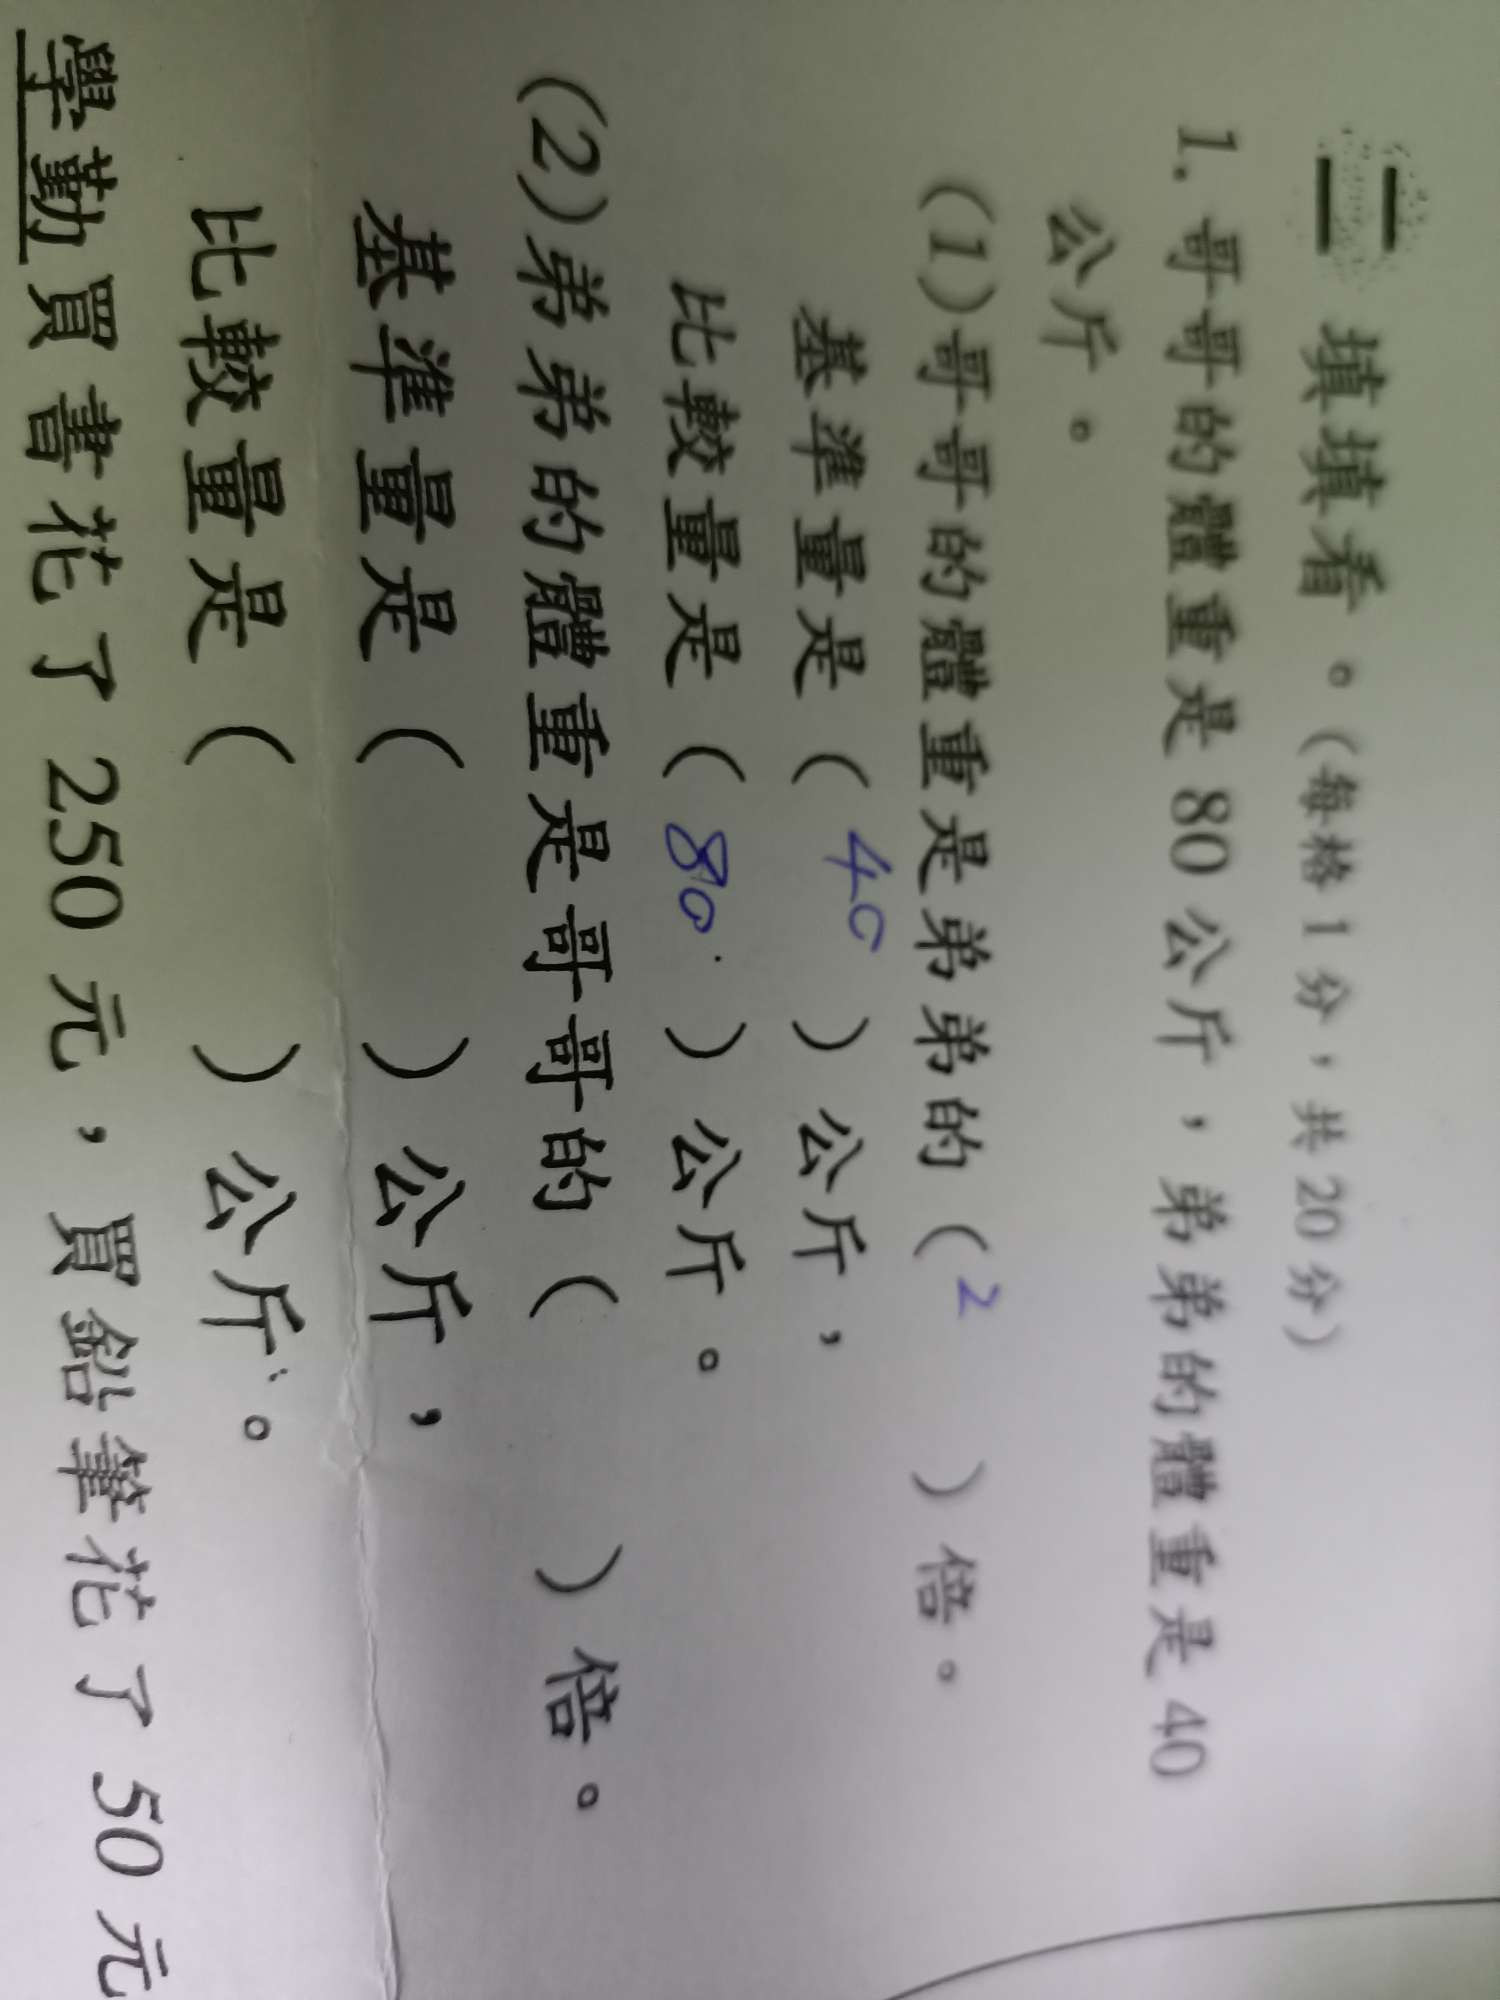 二 填填看。(每格1分,共20分)
1. 哥哥的體重是80公斤,弟弟的體重是40
公斤。
(1)哥哥的體重是弟弟的(2)倍。
基準量是(40)公斤,
比較量是(80)公斤。
(2)弟弟的體重是哥哥的( )倍。
基準量是( )公斤,
比較量是( )公斤。
學勤買書花了250元,買鉛筆花了50元